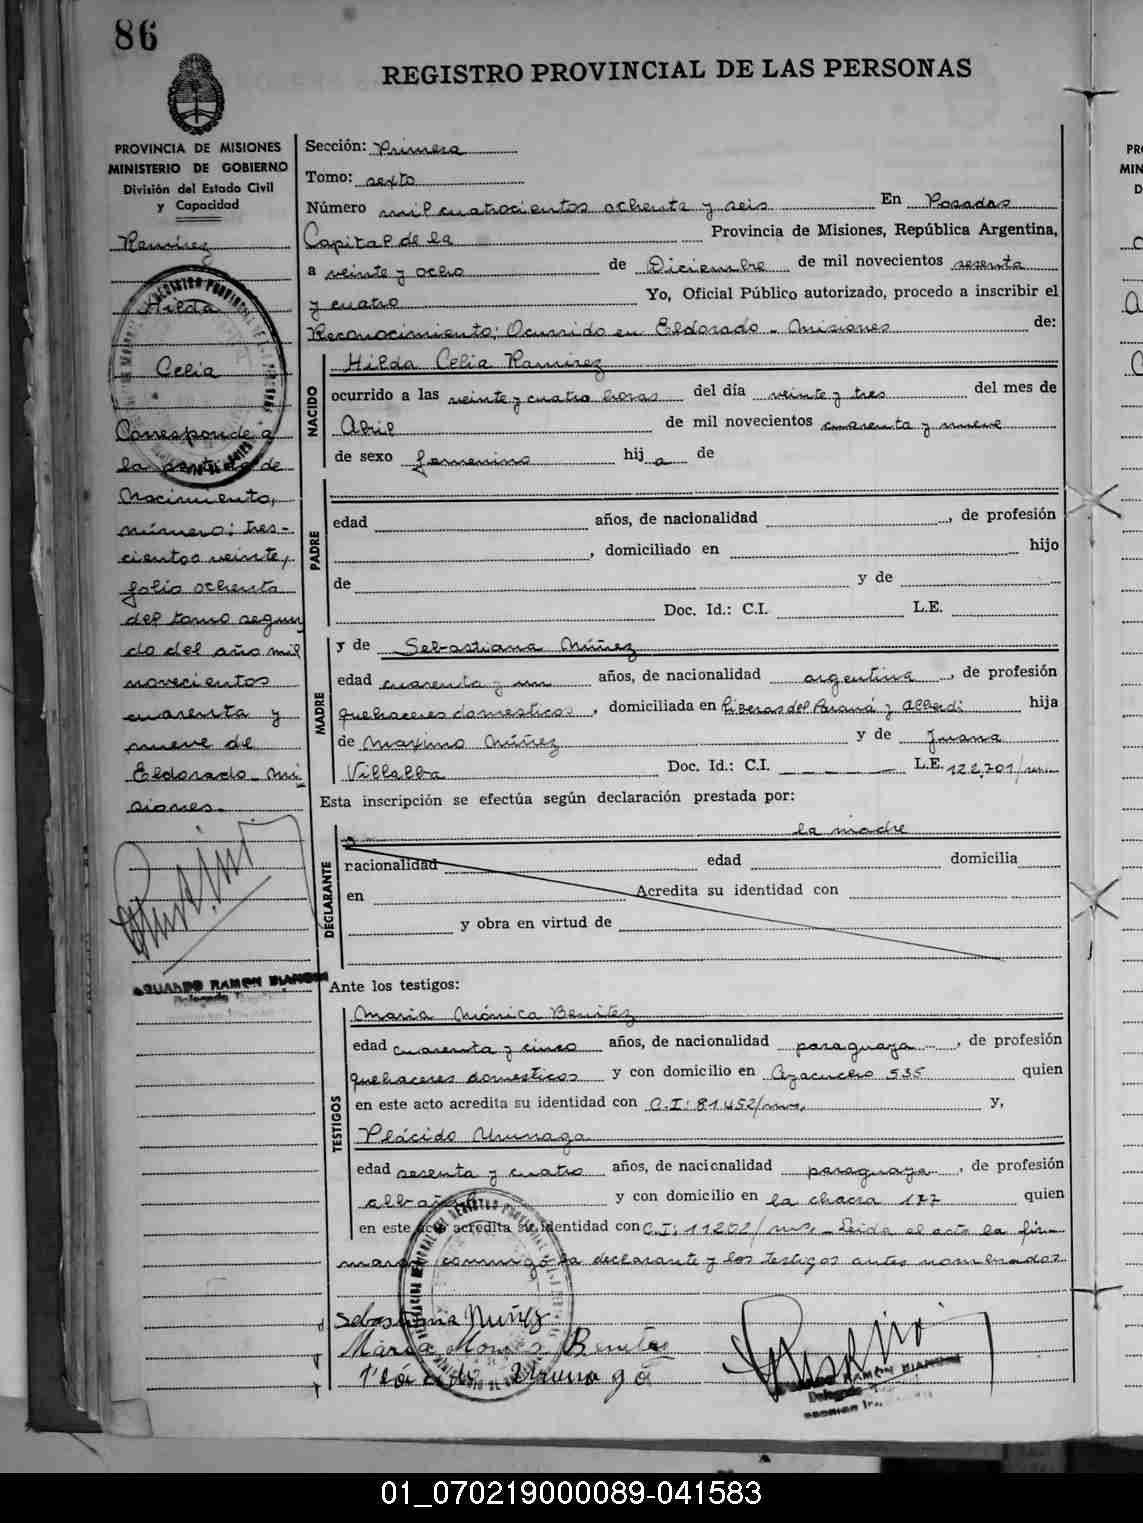 86
REGISTRO PROVINCIAL DE LAS PERSONAS
PROVINCIA DE MISIONES
MINISTERIO DE GOBIERNO
División del Estado Civil
y Capacidad
Ramírez
Hilda
Celia
Corresponde a
la partida de
Nacimiento,
número: tres-
cientos veinte,
folio ochenta
del tomo segun
do del año mil
novecientos
cuarenta y
nueve de
Eldorado - Mi
siones.
EDUARDO RAMON BIANCHI
Delegado
Sección: Primera
Tomo: sexto
Número mil cuatrocientos ochenta y seis En Posadas
Capital de la Provincia de Misiones, República Argentina,
a veinte y ocho de Diciembre de mil novecientos sesenta
y cuatro Yo, Oficial Público autorizado, procedo a inscribir el
Reconocimiento; Ocurrido en Eldorado - Misiones de:
NACIDO
Hilda Celia Ramirez
ocurrido a las veinte y cuatro horas del día veinte y tres del mes de
Abril de mil novecientos cuarenta y nueve
de sexo femenino hij a de
PADRE
edad años, de nacionalidad , de profesión
, domiciliado en hijo
de y de
Doc. Id.: C.I. L.E.
MADRE
y de Sebastiana Núñez
edad cuarenta y un años, de nacionalidad argentina , de profesión
quehaceres domesticos , domiciliada en Riberas del Paraná y Alberdi hija
de Maximo Núñez y de Juana
Villalba Doc. Id.: C.I. L.E. 122,701/
Esta inscripción se efectúa según declaración prestada por:
la madre
DECLARANTE
nacionalidad edad domicilia
en Acredita su identidad con
y obra en virtud de
Ante los testigos:
TESTIGOS
Maria Mónica Benitez
edad cuarenta y cinco años, de nacionalidad paraguaya , de profesión
quehaceres domesticos y con domicilio en Ayacucho 535 quien
en este acto acredita su identidad con C.I: 81452/mns, y,
Plácido Urunaga
edad sesenta y cuatro años, de nacionalidad paraguaya , de profesión
albañil y con domicilio en la chacra 177 quien
en este acto acredita su identidad con C.I: 11202/mns - Leída el acta la fir-
man conmigo la declarante y los testigos antes nombrados
Sebastiana Nuñez
Maria Benites
RAMON BIANCHI
Delegado
01_070219000089-041583